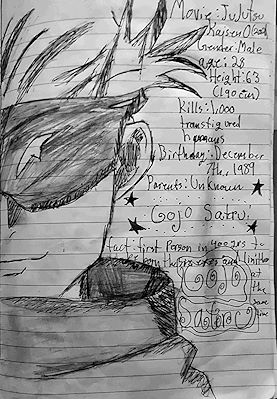 Movie: Jujutsu
Kaisen
Gender: Male
age: 28
Height: 6'3
(190 cm)
Kills: 1,000
transfigured
humans
Birthday: December
7th, 1989
Parents: Unknown
Gojo Satru
fact: first Person in 400 yrs to
and limitless
at
the
same
time
GOJO
Satoru